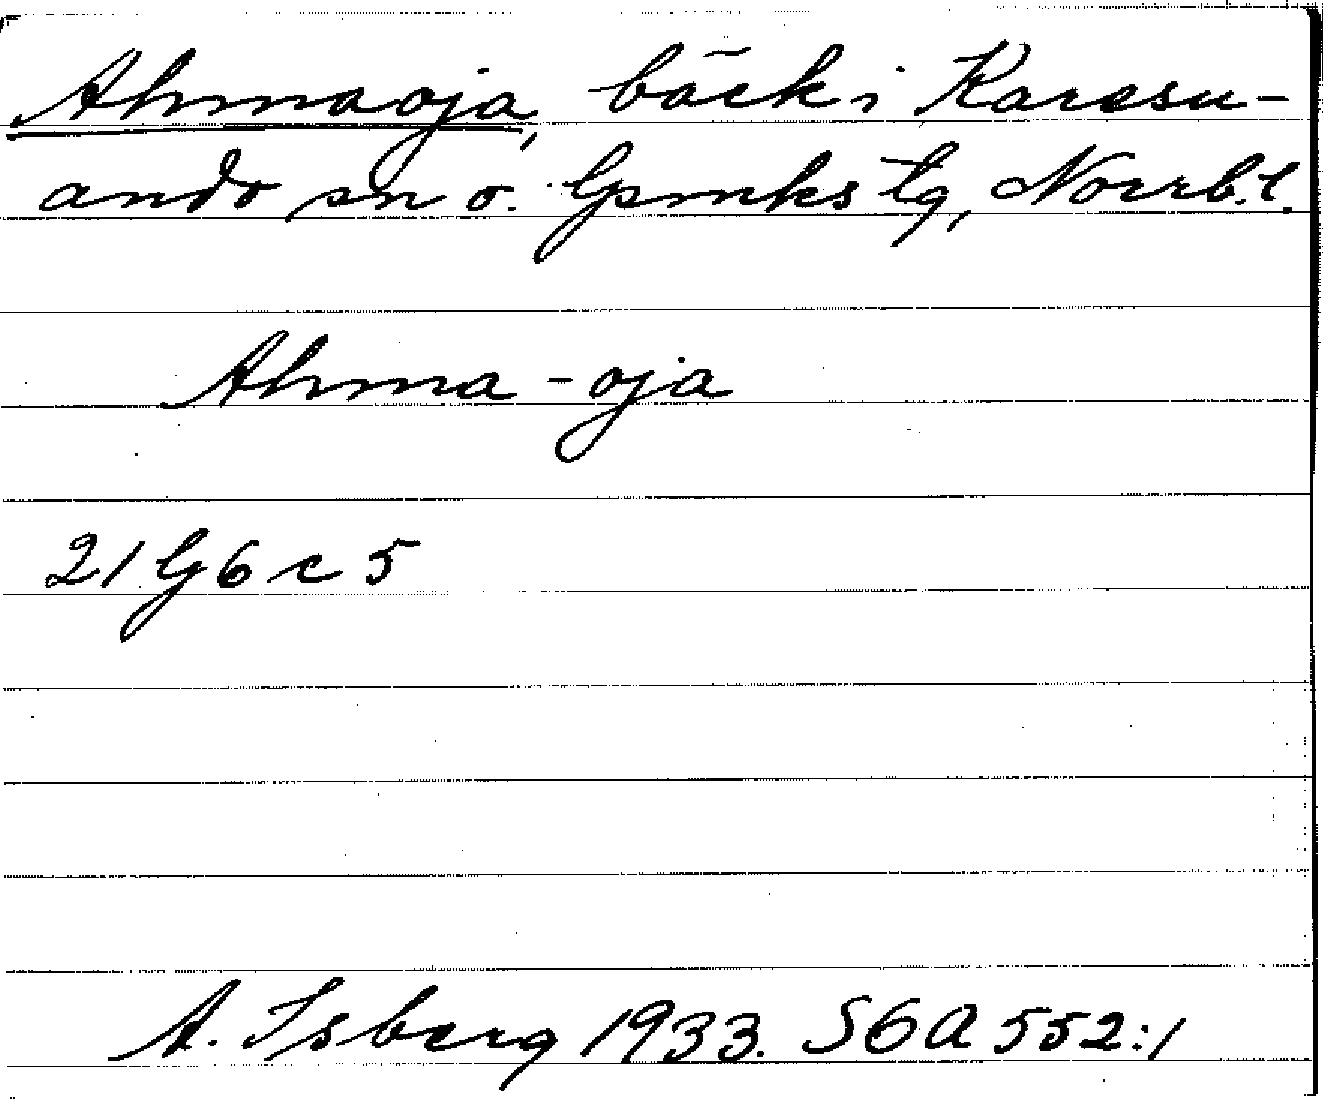 Ahmaoja, bäck i Karesu-
ando sn o. Gsmks tg, Norrb. l.
Ahma-oja
21 G 6 c 5
A. Isberg 1933. SOA 552:1